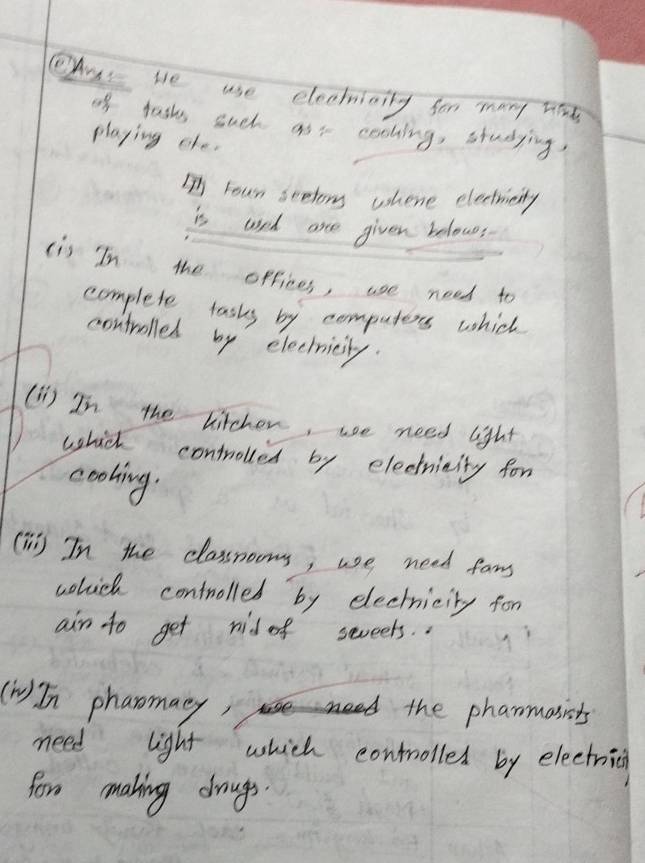 (e) Ans:- We use electricity for many kinds
of tasks such as:- cooking, studying,
playing etc.
Four sectors where electricity
is used are given below:-
(i) In the offices, we need to
complete tasks by computers which
controlled by electricity.
(ii) In the kitchen, we need light
which controlled by electricity for
cooking.
(iii) In the classrooms, we need fans
which controlled by electricity for
air to get rid of sweets..
(iv) In pharmacy, we need the pharmasists
need light which controlled by electricity
for making drugs.